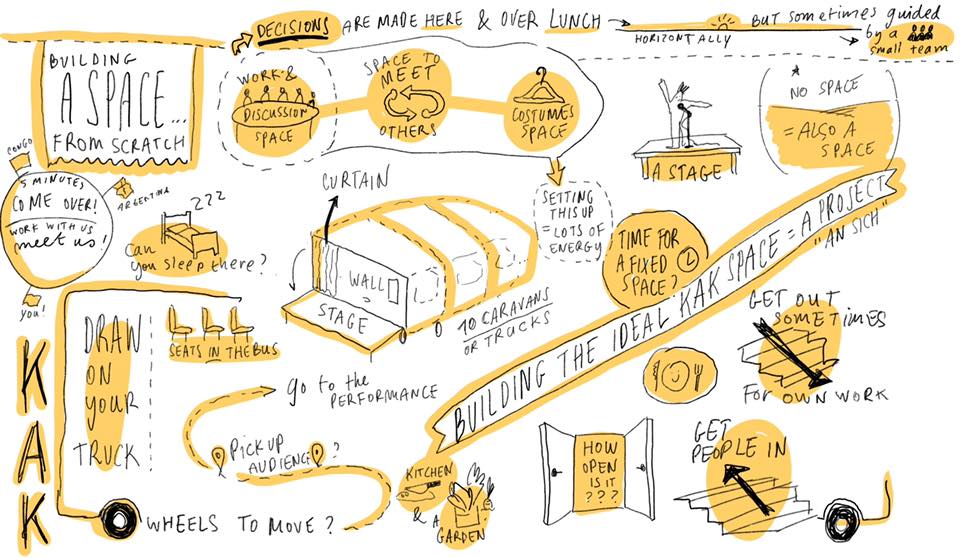 DECISIONS ARE MADE HERE & OVER LUNCH
HORIZONTALLY
BUT sometimes guided
by a
small team
BUILDING
A SPACE...
FROM SCRATCH
WORK &
DISCUSSION
SPACE
SPACE TO
MEET
OTHERS
COSTUMES
SPACE
A STAGE
NO SPACE
= ALSO A
SPACE
CONGO
ARGENTINA
5 MINUTES
COME OVER!
WORK WITH US
meet us!
you!
ZZZ
Can
you sleep there?
CURTAIN
WALL
STAGE
10 CARAVANS
OR TRUCKS
SETTING
THIS UP
= LOTS OF
ENERGY
TIME FOR
A FIXED
SPACE?
BUILDING THE IDEAL KAK SPACE = A PROJECT
"AN SICH"
KAK
DRAW
ON
your
TRUCK
SEATS IN THE BUS
go to the
PERFORMANCE
PICK UP
AUDIENCE?
WHEELS TO MOVE?
KITCHEN
& A
GARDEN
HOW
OPEN
IS IT
???
GET OUT
SOMETIMES
FOR OWN WORK
GET
PEOPLE IN